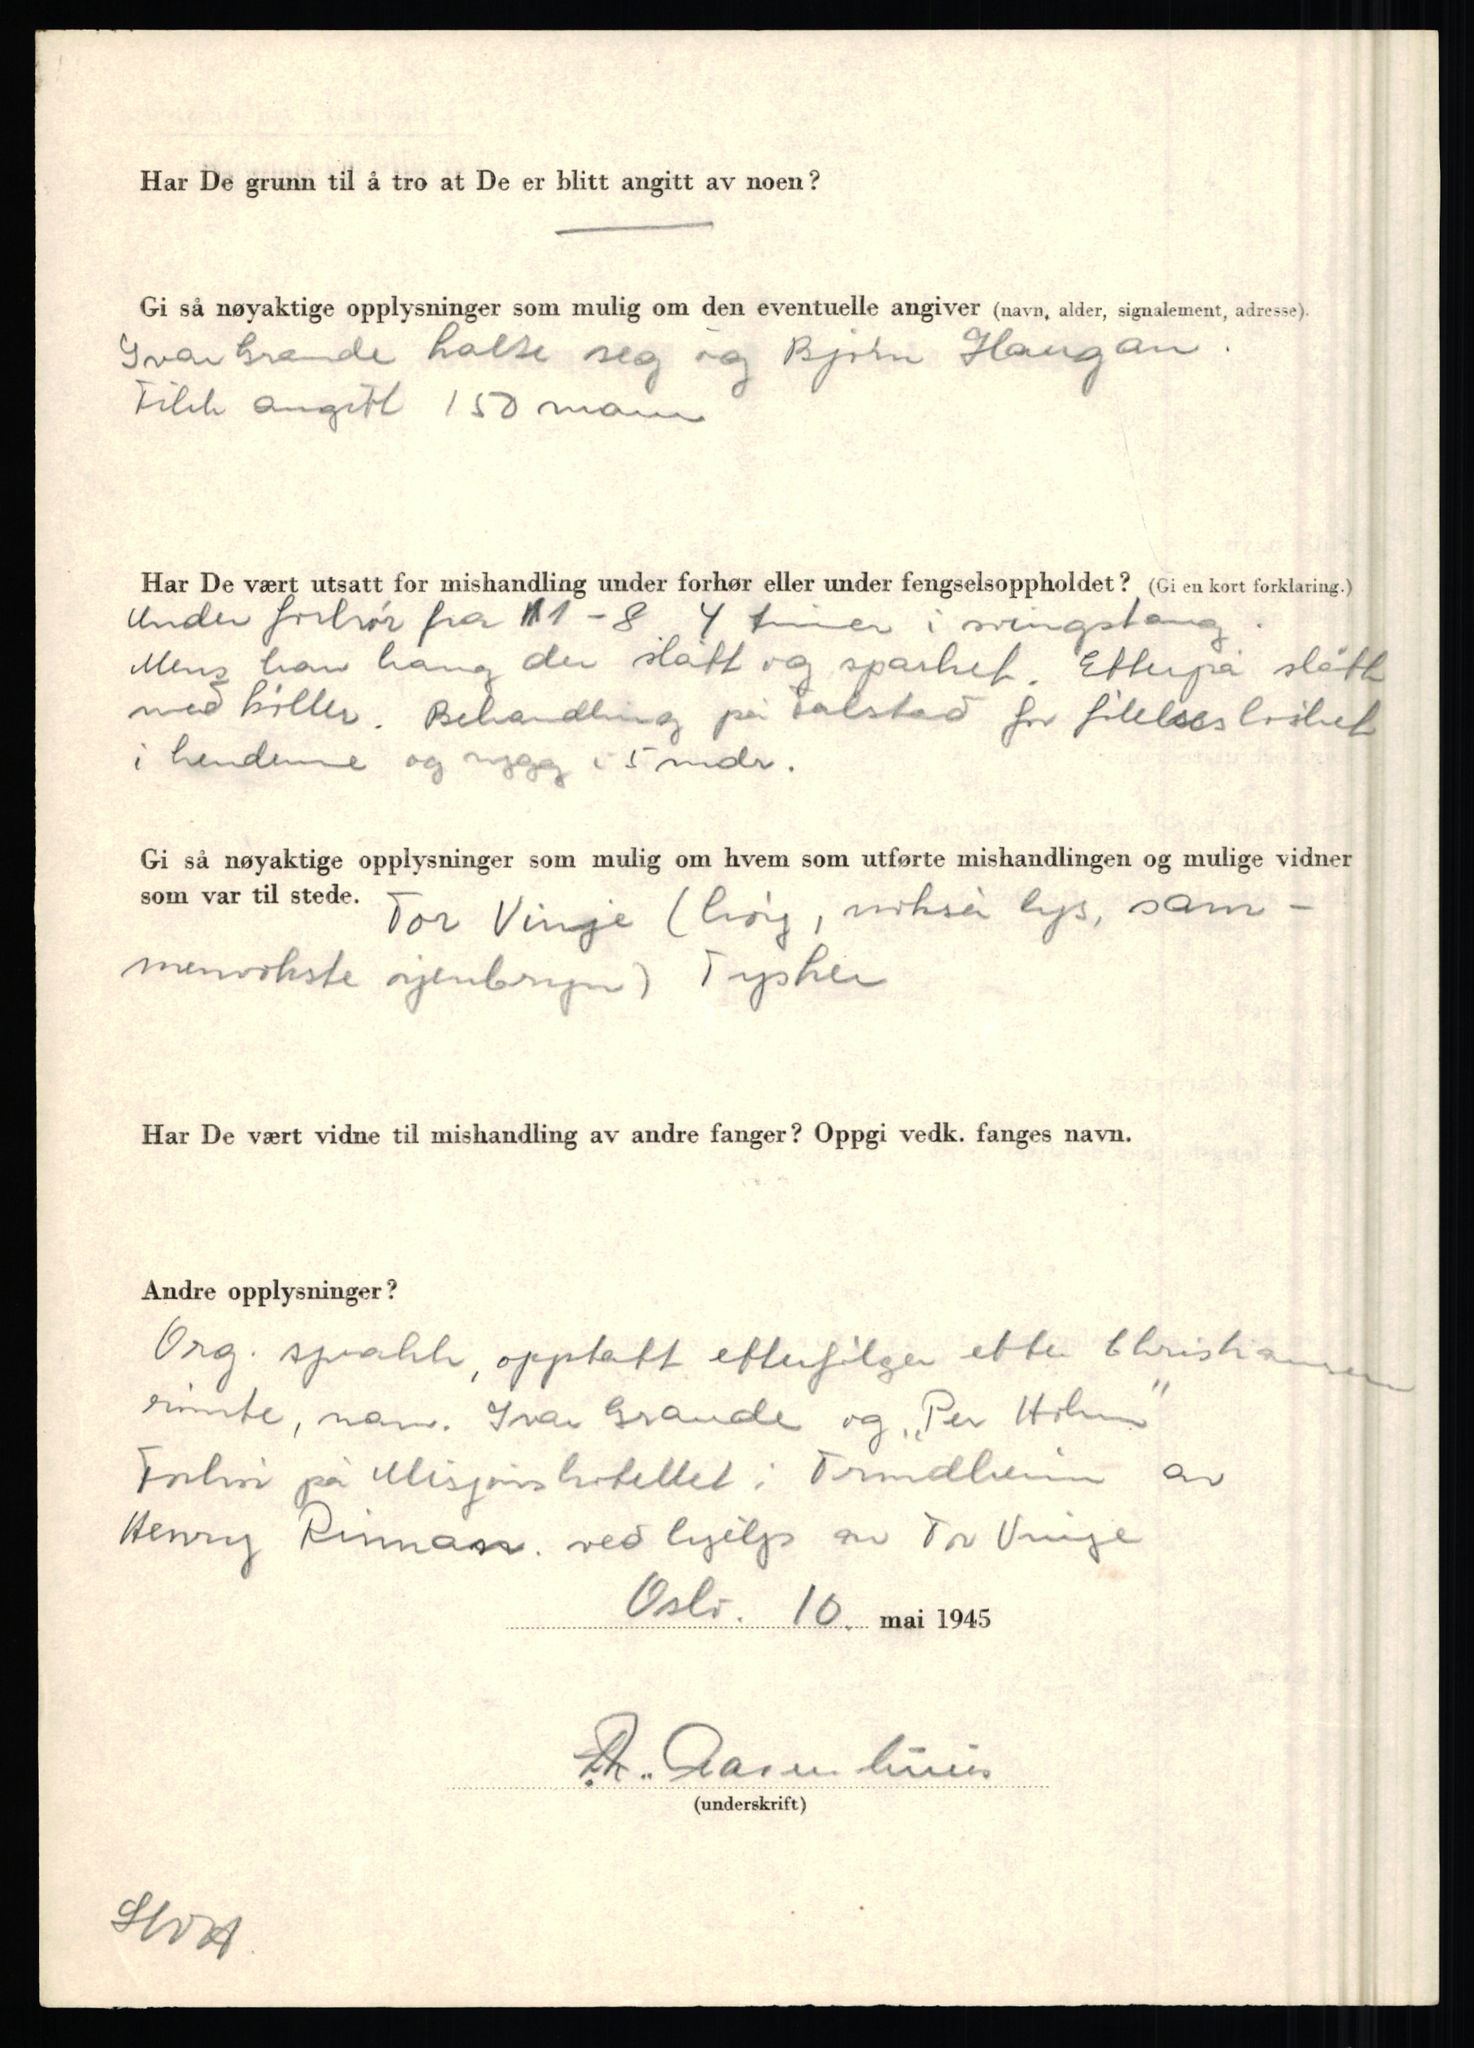 Har De grunn til å tro at De er blitt angitt av noen?
Gi så nøyaktige opplysninger som mulig om den eventuelle angiver (navn, alder, signalement, adresse).
Ivar Grande kalte seg og Bjørn Haugan.
Fikk angitt 150 mann
Har De vært utsatt for mishandling under forhør eller under fengselsoppholdet? (Gi en kort forklaring.)
Under forhør fra 11-8 4 timer i svingstang.
Mens han hang der slått og sparket. Etterpå slått
med køller. Behandling på Falstad for følelsesløshet
i hendene og rygg i 5 mdr.
Gi så nøyaktige opplysninger som mulig om hvem som utførte mishandlingen og mulige vidner
som var til stede. Tor Vinje (høy, nokså lys, sam-
menvokste øjenbryn) Tysker
Har De vært vidne til mishandling av andre fanger? Oppgi vedk. fanges navn.
Andre opplysninger?
Org. sprakk, opptatt etterfølger etter Christiansen
rømte, nam. Ivar Grande og „Per Holm"
Forhør på Misjonshotellet i Trondheim av
Henry Rinnan. ved hjelp av Tor Vinje
Oslo. 10. mai 1945
Aasenhuus
(underskrift)